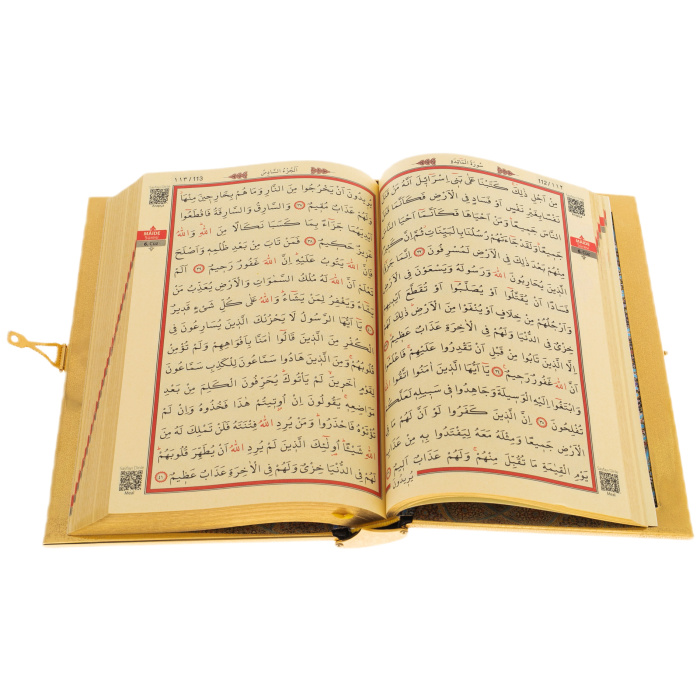 112/١١٢ سُورَةُ الْمَائِدَةِ
مِنْ اَجْلِ ذٰلِكَ كَتَبْنَا عَلٰى بَنٖى اِسْرَائٖلَ اَنَّهُ مَنْ قَتَلَ
نَفْسًا بِغَيْرِ نَفْسٍ اَوْ فَسَادٍ فِى الْاَرْضِ فَكَاَنَّمَا قَتَلَ
النَّاسَ جَمٖيعًا وَمَنْ اَحْيَاهَا فَكَاَنَّمَا اَحْيَا النَّاسَ
جَمٖيعًا وَلَقَدْ جَاءَتْهُمْ رُسُلُنَا بِالْبَيِّنَاتِ ثُمَّ اِنَّ كَثٖيرًا
مِنْهُمْ بَعْدَ ذٰلِكَ فِى الْاَرْضِ لَمُسْرِفُونَ ٣٢ اِنَّمَا جَزَاءُ
الَّذٖينَ يُحَارِبُونَ اللّٰهَ وَرَسُولَهُ وَيَسْعَوْنَ فِى الْاَرْضِ
فَسَادًا اَنْ يُقَتَّلُوا اَوْ يُصَلَّبُوا اَوْ تُقَطَّعَ اَيْدٖيهِمْ
وَاَرْجُلُهُمْ مِنْ خِلَافٍ اَوْ يُنْفَوْا مِنَ الْاَرْضِ ذٰلِكَ لَهُمْ
خِزْىٌ فِى الدُّنْيَا وَلَهُمْ فِى الْاٰخِرَةِ عَذَابٌ عَظٖيمٌ ٣٣
اِلَّا الَّذٖينَ تَابُوا مِنْ قَبْلِ اَنْ تَقْدِرُوا عَلَيْهِمْ فَاعْلَمُوا
اَنَّ اللّٰهَ غَفُورٌ رَحٖيمٌ ٣٤ يَا اَيُّهَا الَّذٖينَ اٰمَنُوا اتَّقُوا اللّٰهَ
وَابْتَغُوا اِلَيْهِ الْوَسٖيلَةَ وَجَاهِدُوا فٖى سَبٖيلِهٖ لَعَلَّكُمْ
تُفْلِحُونَ ٣٥ اِنَّ الَّذٖينَ كَفَرُوا لَوْ اَنَّ لَهُمْ مَا فِى
الْاَرْضِ جَمٖيعًا وَمِثْلَهُ مَعَهُ لِيَفْتَدُوا بِهٖ مِنْ عَذَابِ
يَوْمِ الْقِيٰمَةِ مَا تُقُبِّلَ مِنْهُمْ وَلَهُمْ عَذَابٌ اَلٖيمٌ ٣٦
يُرٖيدُونَ
اَلْجُزْءُ السَّادِسُ ١١٣/113
يُرٖيدُونَ اَنْ يَخْرُجُوا مِنَ النَّارِ وَمَا هُمْ بِخَارِجٖينَ مِنْهَا
وَلَهُمْ عَذَابٌ مُقٖيمٌ ٣٧ وَالسَّارِقُ وَالسَّارِقَةُ فَاقْطَعُوا
اَيْدِيَهُمَا جَزَاءً بِمَا كَسَبَا نَكَالًا مِنَ اللّٰهِ وَاللّٰهُ
عَزٖيزٌ حَكٖيمٌ ٣٨ فَمَنْ تَابَ مِنْ بَعْدِ ظُلْمِهٖ وَاَصْلَحَ
فَاِنَّ اللّٰهَ يَتُوبُ عَلَيْهِ اِنَّ اللّٰهَ غَفُورٌ رَحٖيمٌ ٣٩ اَلَمْ
تَعْلَمْ اَنَّ اللّٰهَ لَهُ مُلْكُ السَّمٰوَاتِ وَالْاَرْضِ يُعَذِّبُ مَنْ
يَشَاءُ وَيَغْفِرُ لِمَنْ يَشَاءُ وَاللّٰهُ عَلٰى كُلِّ شَىْءٍ قَدٖيرٌ
٤٠ يَا اَيُّهَا الرَّسُولُ لَا يَحْزُنْكَ الَّذٖينَ يُسَارِعُونَ فِى
الْكُفْرِ مِنَ الَّذٖينَ قَالُوا اٰمَنَّا بِاَفْوَاهِهِمْ وَلَمْ تُؤْمِنْ
قُلُوبُهُمْ وَمِنَ الَّذٖينَ هَادُوا سَمَّاعُونَ لِلْكَذِبِ سَمَّاعُونَ
لِقَوْمٍ اٰخَرٖينَ لَمْ يَاْتُوكَ يُحَرِّفُونَ الْكَلِمَ مِنْ بَعْدِ
مَوَاضِعِهٖ يَقُولُونَ اِنْ اُوتٖيتُمْ هٰذَا فَخُذُوهُ وَاِنْ لَمْ
تُؤْتَوْهُ فَاحْذَرُوا وَمَنْ يُرِدِ اللّٰهُ فِتْنَتَهُ فَلَنْ تَمْلِكَ لَهُ مِنَ
اللّٰهِ شَيْـًٔا اُولٰئِكَ الَّذٖينَ لَمْ يُرِدِ اللّٰهُ اَنْ يُطَهِّرَ قُلُوبَهُمْ
لَهُمْ فِى الدُّنْيَا خِزْىٌ وَلَهُمْ فِى الْاٰخِرَةِ عَذَابٌ عَظٖيمٌ ٤١
MAIDE
Meali
Meali